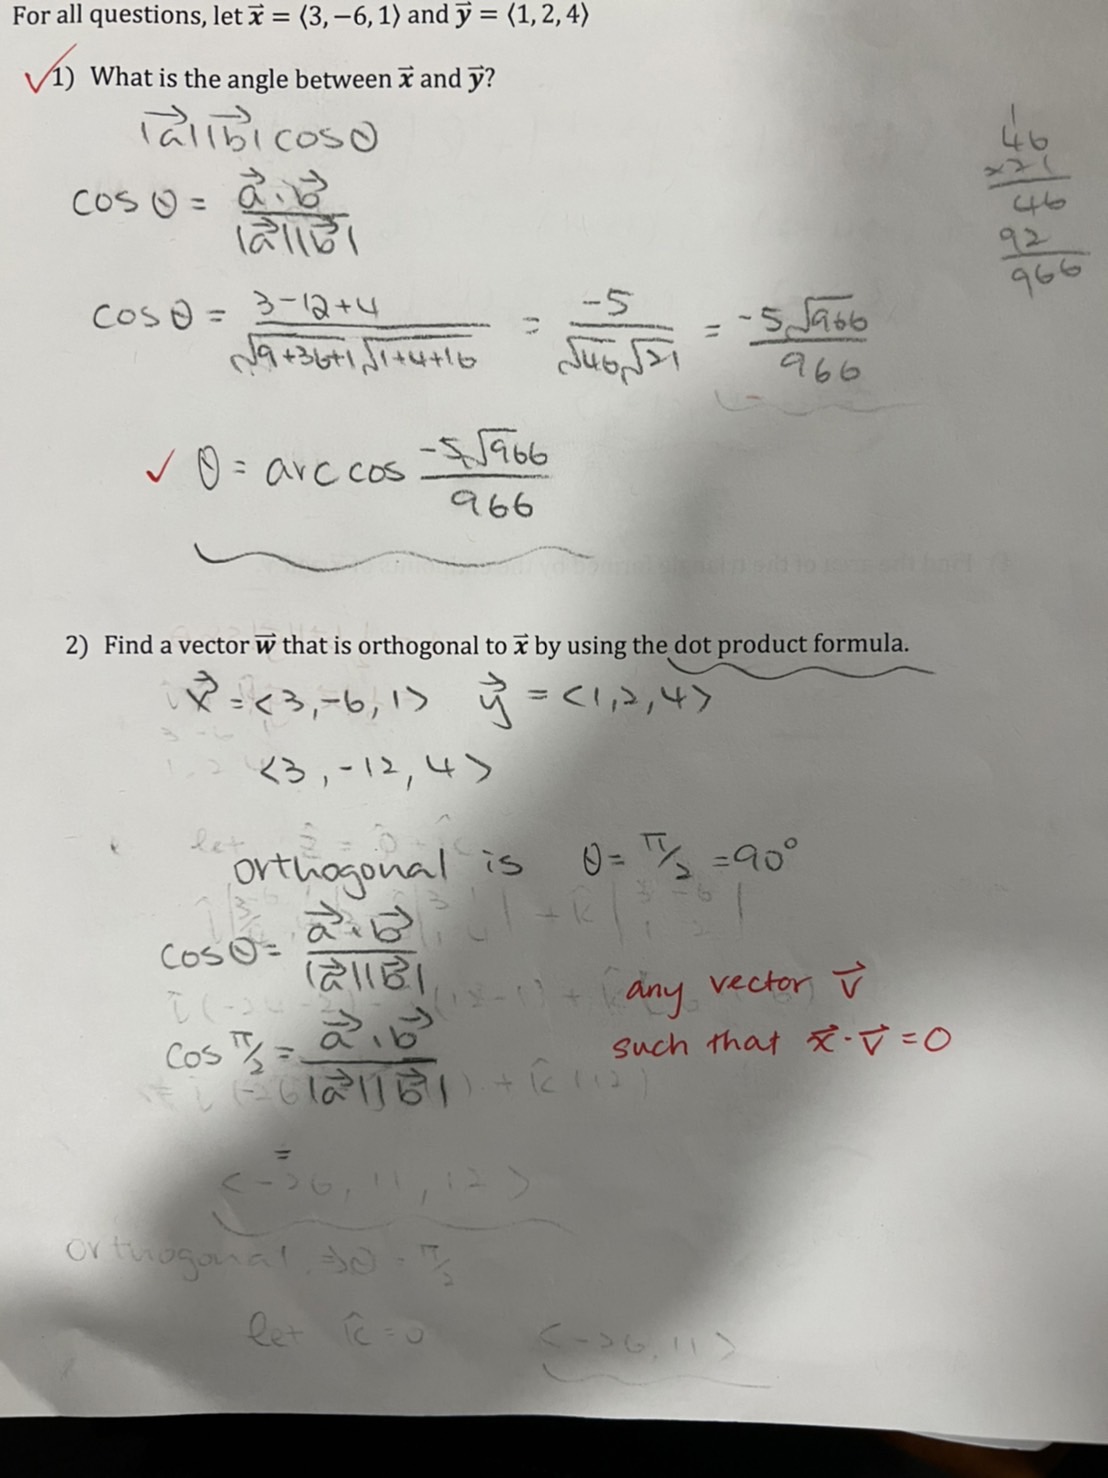 For all questions, let x⃗ = ⟨3, −6, 1⟩ and y⃗ = ⟨1, 2, 4⟩
✓1) What is the angle between x⃗ and y⃗?
|a⃗||b⃗| cos θ
cos θ = a⃗·b⃗ / |a⃗||b⃗|
1
46
×21
46
92
966
cos θ = 3−12+4 / √9+36+1 √1+4+16 = −5 / √46 √21 = −5√966 / 966
✓ θ = arc cos −5√966 / 966
2) Find a vector w⃗ that is orthogonal to x⃗ by using the dot product formula.
x⃗ = <3, −6, 1> y⃗ = <1, 2, 4>
<3, −12, 4>
orthogonal is θ = π/2 = 90°
cos θ = a⃗·b⃗ / |a⃗||b⃗|
any vector v⃗
such that x⃗·v⃗ = 0
cos π/2 = a⃗·b⃗ / |a⃗||b⃗|
=
<−26, 11, 12>
orthogonal ⇒ θ = π/2
let k̂ = 0 <−26, 11>